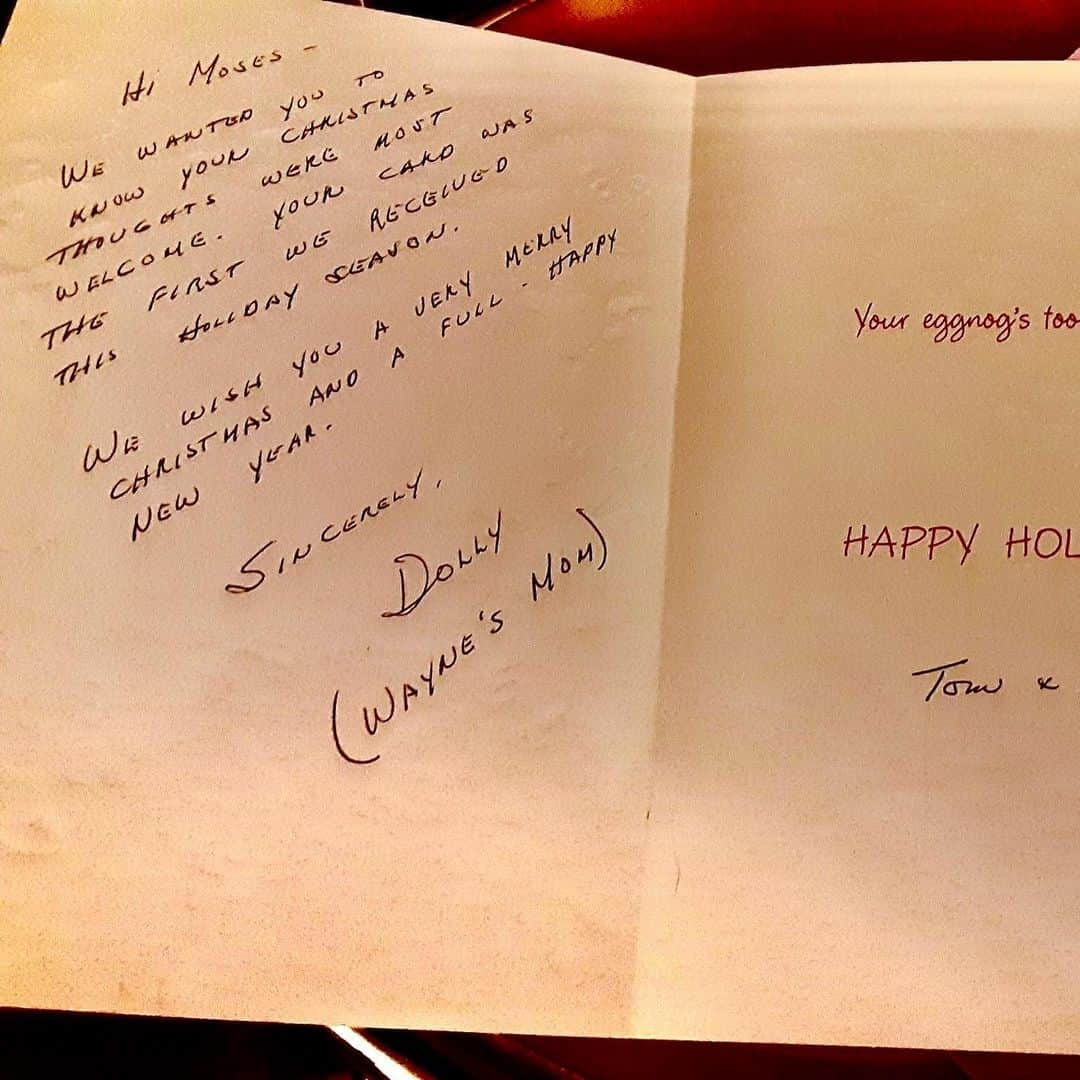 Hi Moses -
WE WANTED YOU TO
KNOW YOUR CHRISTMAS
THOUGHTS WERE MOST
WELCOME. YOUR CARD WAS
THE FIRST WE RECEIVED
THIS HOLIDAY SEASON.
WE WISH YOU A VERY MERRY
CHRISTMAS AND A FULL - HAPPY
NEW YEAR.
SINCERELY,
DOLLY
(WAYNE'S MOM)
Your eggnog's too
HAPPY HOL
Tom &